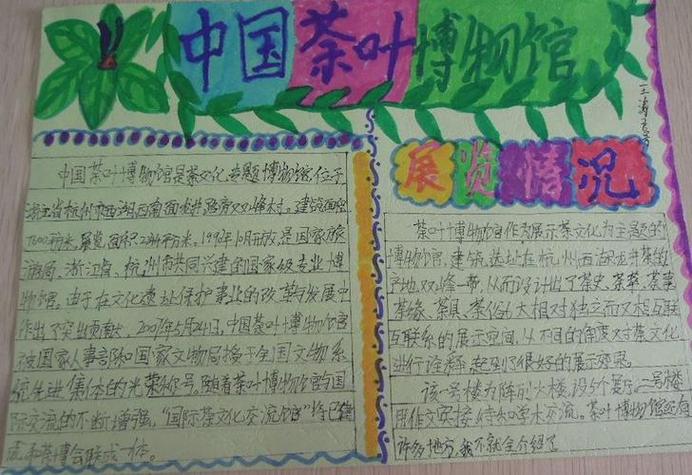 中国茶叶博物馆
中国茶叶博物馆是茶文化专题博物馆位于
浙江省杭州市西湖西南面龙井路旁双峰村。建筑面积
7600平方米,展览面积2244平方米,1990年10月开放,是国家旅
游局、浙江省、杭州市共同兴建的国家级专业博
物馆。由于在文化遗址保护事业的改革与发展中
作出了突出贡献,2007年5月24日,中国茶叶博物馆
被国家人事部和国家文物局授于全国文物系
统先进集体的光荣称号。随着茶叶博物馆与国
际交流的不断增强,“国际茶文化交流馆”将已
茶博会联成一体。
展览情况
茶叶博物馆作为展示茶文化为主题的
博物馆,建筑选址在杭州西湖龙井茶的
产地双峰一带,从而设计出了茶史、茶萃、茶事
茶缘、茶具、茶俗6大相对独立而又相互
互联系的展示空间,从不同的角度对茶文化
进行诠释,起到了很好的展示效果。
该一号楼为陈列大楼,设5个展厅,二号楼
用作交接待和学术交流。茶叶博物馆还有
许多地方,我不就全介绍了